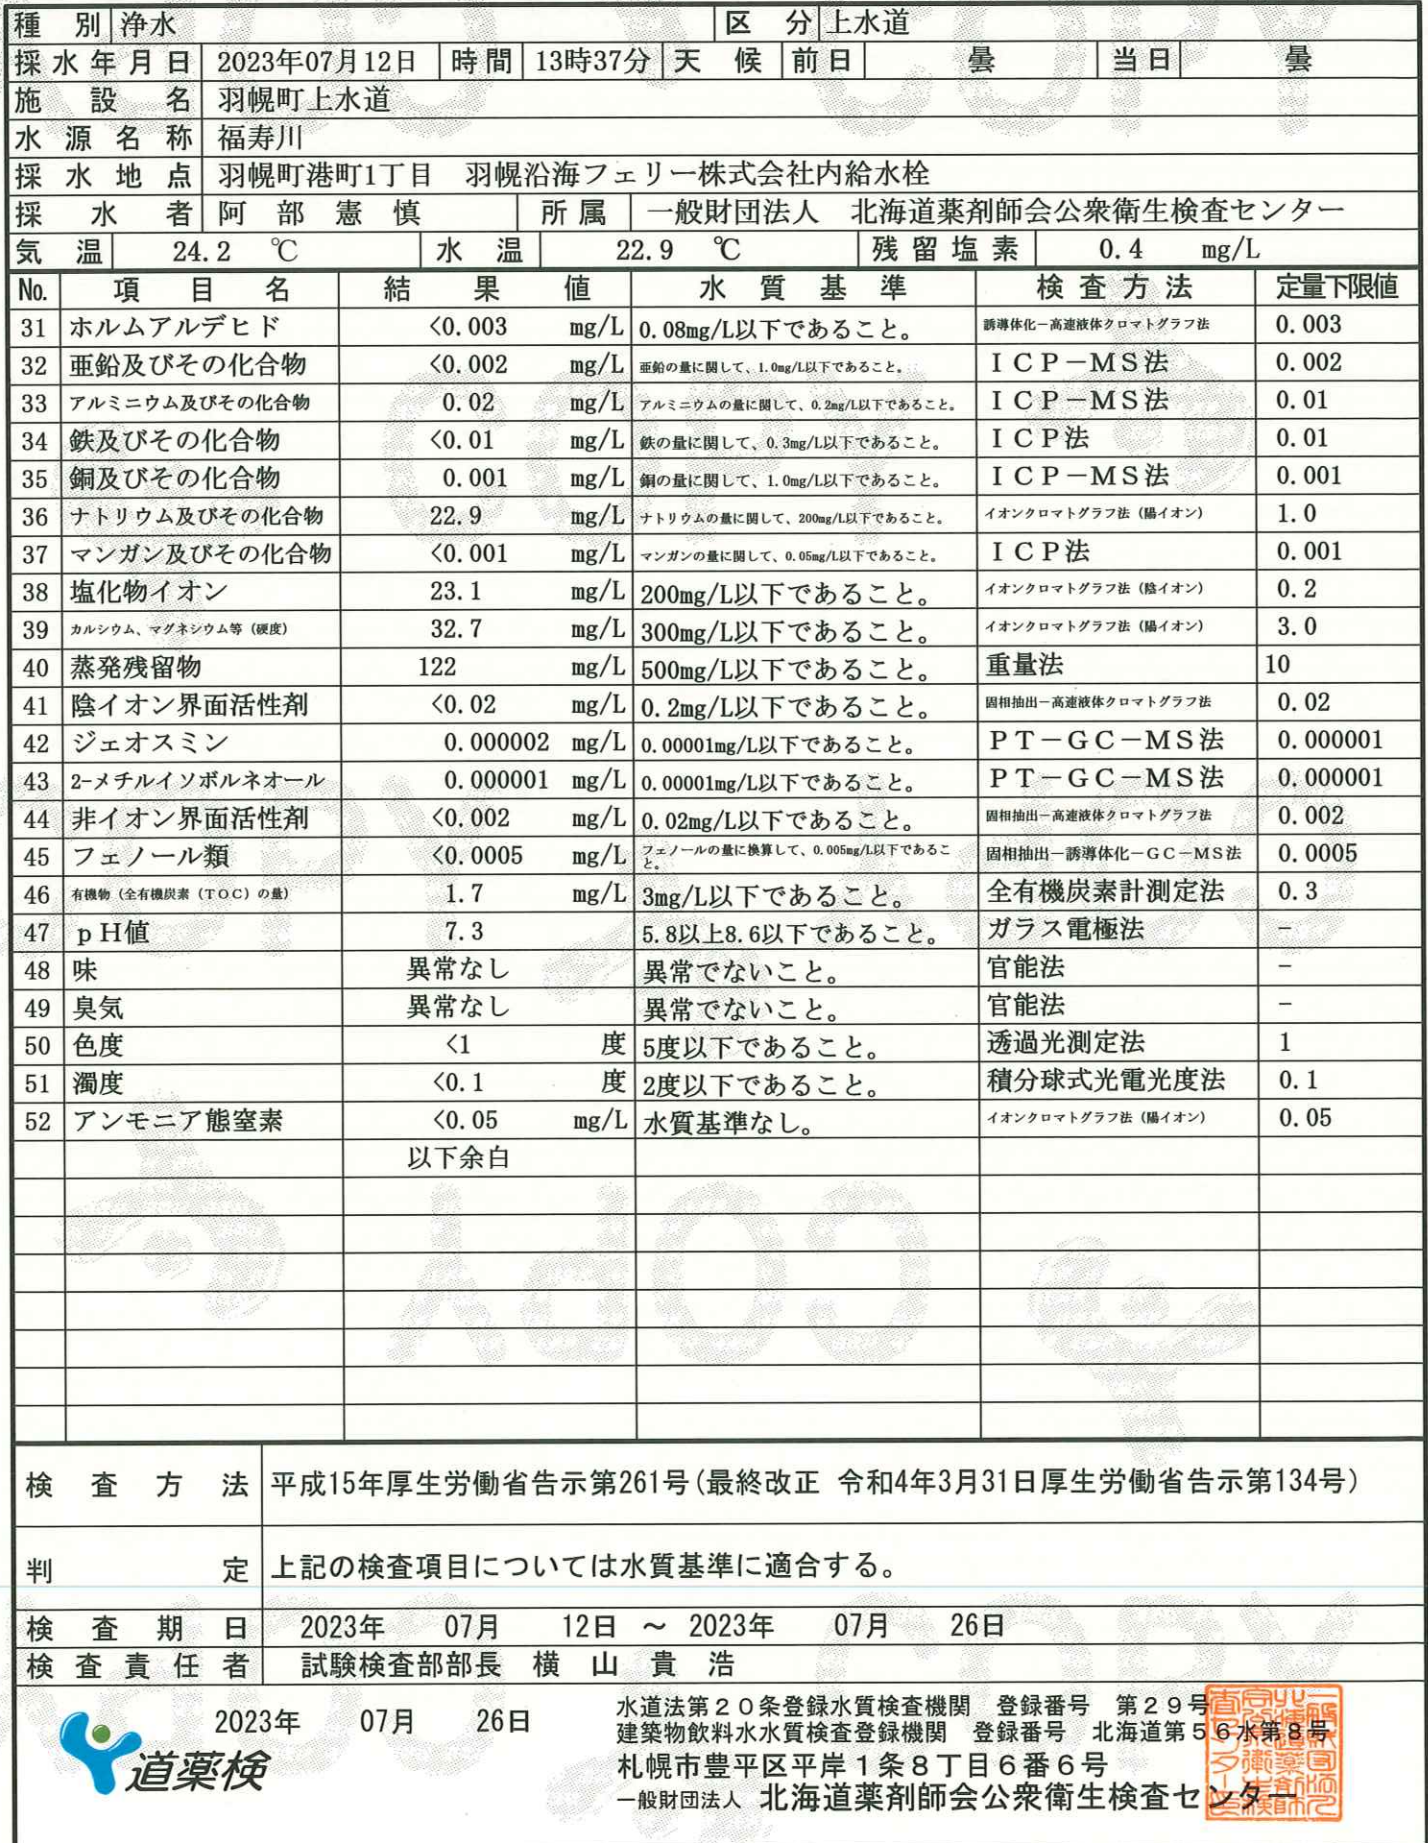 種別 浄水 区分 上水道
採水年月日 2023年07月12日 時間 13時37分 天候 前日 曇 当日 曇
施設名 羽幌町上水道
水源名称 福寿川
採水地点 羽幌町港町1丁目 羽幌沿海フェリー株式会社内給水栓
採水者 阿部憲慎 所属 一般財団法人 北海道薬剤師会公衆衛生検査センター
気温 24.2 ℃ 水温 22.9 ℃ 残留塩素 0.4 mg/L
No. 項目名 結果値 水質基準 検査方法 定量下限値
31 ホルムアルデヒド <0.003 mg/L 0.08mg/L以下であること。 誘導体化－高速液体クロマトグラフ法 0.003
32 亜鉛及びその化合物 <0.002 mg/L 亜鉛の量に関して、1.0mg/L以下であること。 ＩＣＰ－ＭＳ法 0.002
33 アルミニウム及びその化合物 0.02 mg/L アルミニウムの量に関して、0.2mg/L以下であること。 ＩＣＰ－ＭＳ法 0.01
34 鉄及びその化合物 <0.01 mg/L 鉄の量に関して、0.3mg/L以下であること。 ＩＣＰ法 0.01
35 銅及びその化合物 0.001 mg/L 銅の量に関して、1.0mg/L以下であること。 ＩＣＰ－ＭＳ法 0.001
36 ナトリウム及びその化合物 22.9 mg/L ナトリウムの量に関して、200mg/L以下であること。 イオンクロマトグラフ法（陽イオン） 1.0
37 マンガン及びその化合物 <0.001 mg/L マンガンの量に関して、0.05mg/L以下であること。 ＩＣＰ法 0.001
38 塩化物イオン 23.1 mg/L 200mg/L以下であること。 イオンクロマトグラフ法（陰イオン） 0.2
39 カルシウム、マグネシウム等（硬度） 32.7 mg/L 300mg/L以下であること。 イオンクロマトグラフ法（陽イオン） 3.0
40 蒸発残留物 122 mg/L 500mg/L以下であること。 重量法 10
41 陰イオン界面活性剤 <0.02 mg/L 0.2mg/L以下であること。 固相抽出－高速液体クロマトグラフ法 0.02
42 ジェオスミン 0.000002 mg/L 0.00001mg/L以下であること。 ＰＴ－ＧＣ－ＭＳ法 0.000001
43 2-メチルイソボルネオール 0.000001 mg/L 0.00001mg/L以下であること。 ＰＴ－ＧＣ－ＭＳ法 0.000001
44 非イオン界面活性剤 <0.002 mg/L 0.02mg/L以下であること。 固相抽出－高速液体クロマトグラフ法 0.002
45 フェノール類 <0.0005 mg/L フェノールの量に換算して、0.005mg/L以下であること。 固相抽出－誘導体化－ＧＣ－ＭＳ法 0.0005
46 有機物（全有機炭素（ＴＯＣ）の量） 1.7 mg/L 3mg/L以下であること。 全有機炭素計測定法 0.3
47 ｐＨ値 7.3 5.8以上8.6以下であること。 ガラス電極法 −
48 味 異常なし 異常でないこと。 官能法 −
49 臭気 異常なし 異常でないこと。 官能法 −
50 色度 <1 度 5度以下であること。 透過光測定法 1
51 濁度 <0.1 度 2度以下であること。 積分球式光電光度法 0.1
52 アンモニア態窒素 <0.05 mg/L 水質基準なし。 イオンクロマトグラフ法（陽イオン） 0.05
以下余白
検査方法 平成15年厚生労働省告示第261号(最終改正 令和4年3月31日厚生労働省告示第134号)
判定 上記の検査項目については水質基準に適合する。
検査期日 2023年 07月 12日 ～ 2023年 07月 26日
検査責任者 試験検査部部長 横山貴浩
2023年 07月 26日
道薬検
水道法第２０条登録水質検査機関 登録番号 第２９号
建築物飲料水水質検査登録機関 登録番号 北海道第５６水第８号
札幌市豊平区平岸１条８丁目６番６号
一般財団法人 北海道薬剤師会公衆衛生検査センター
COPY